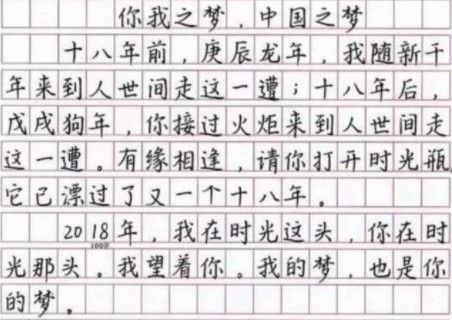 你我之梦,中国之梦
十八年前,庚辰龙年,我随新千
年来到人世间走这一遭;十八年后,
戊戌狗年,你接过火炬来到人世间走
这一遭。有缘相逢,请你打开时光瓶
它已漂过了又一个十八年。
2018年,我在时光这头,你在时
100字
光那头。我望着你。我的梦,也是你
的梦。